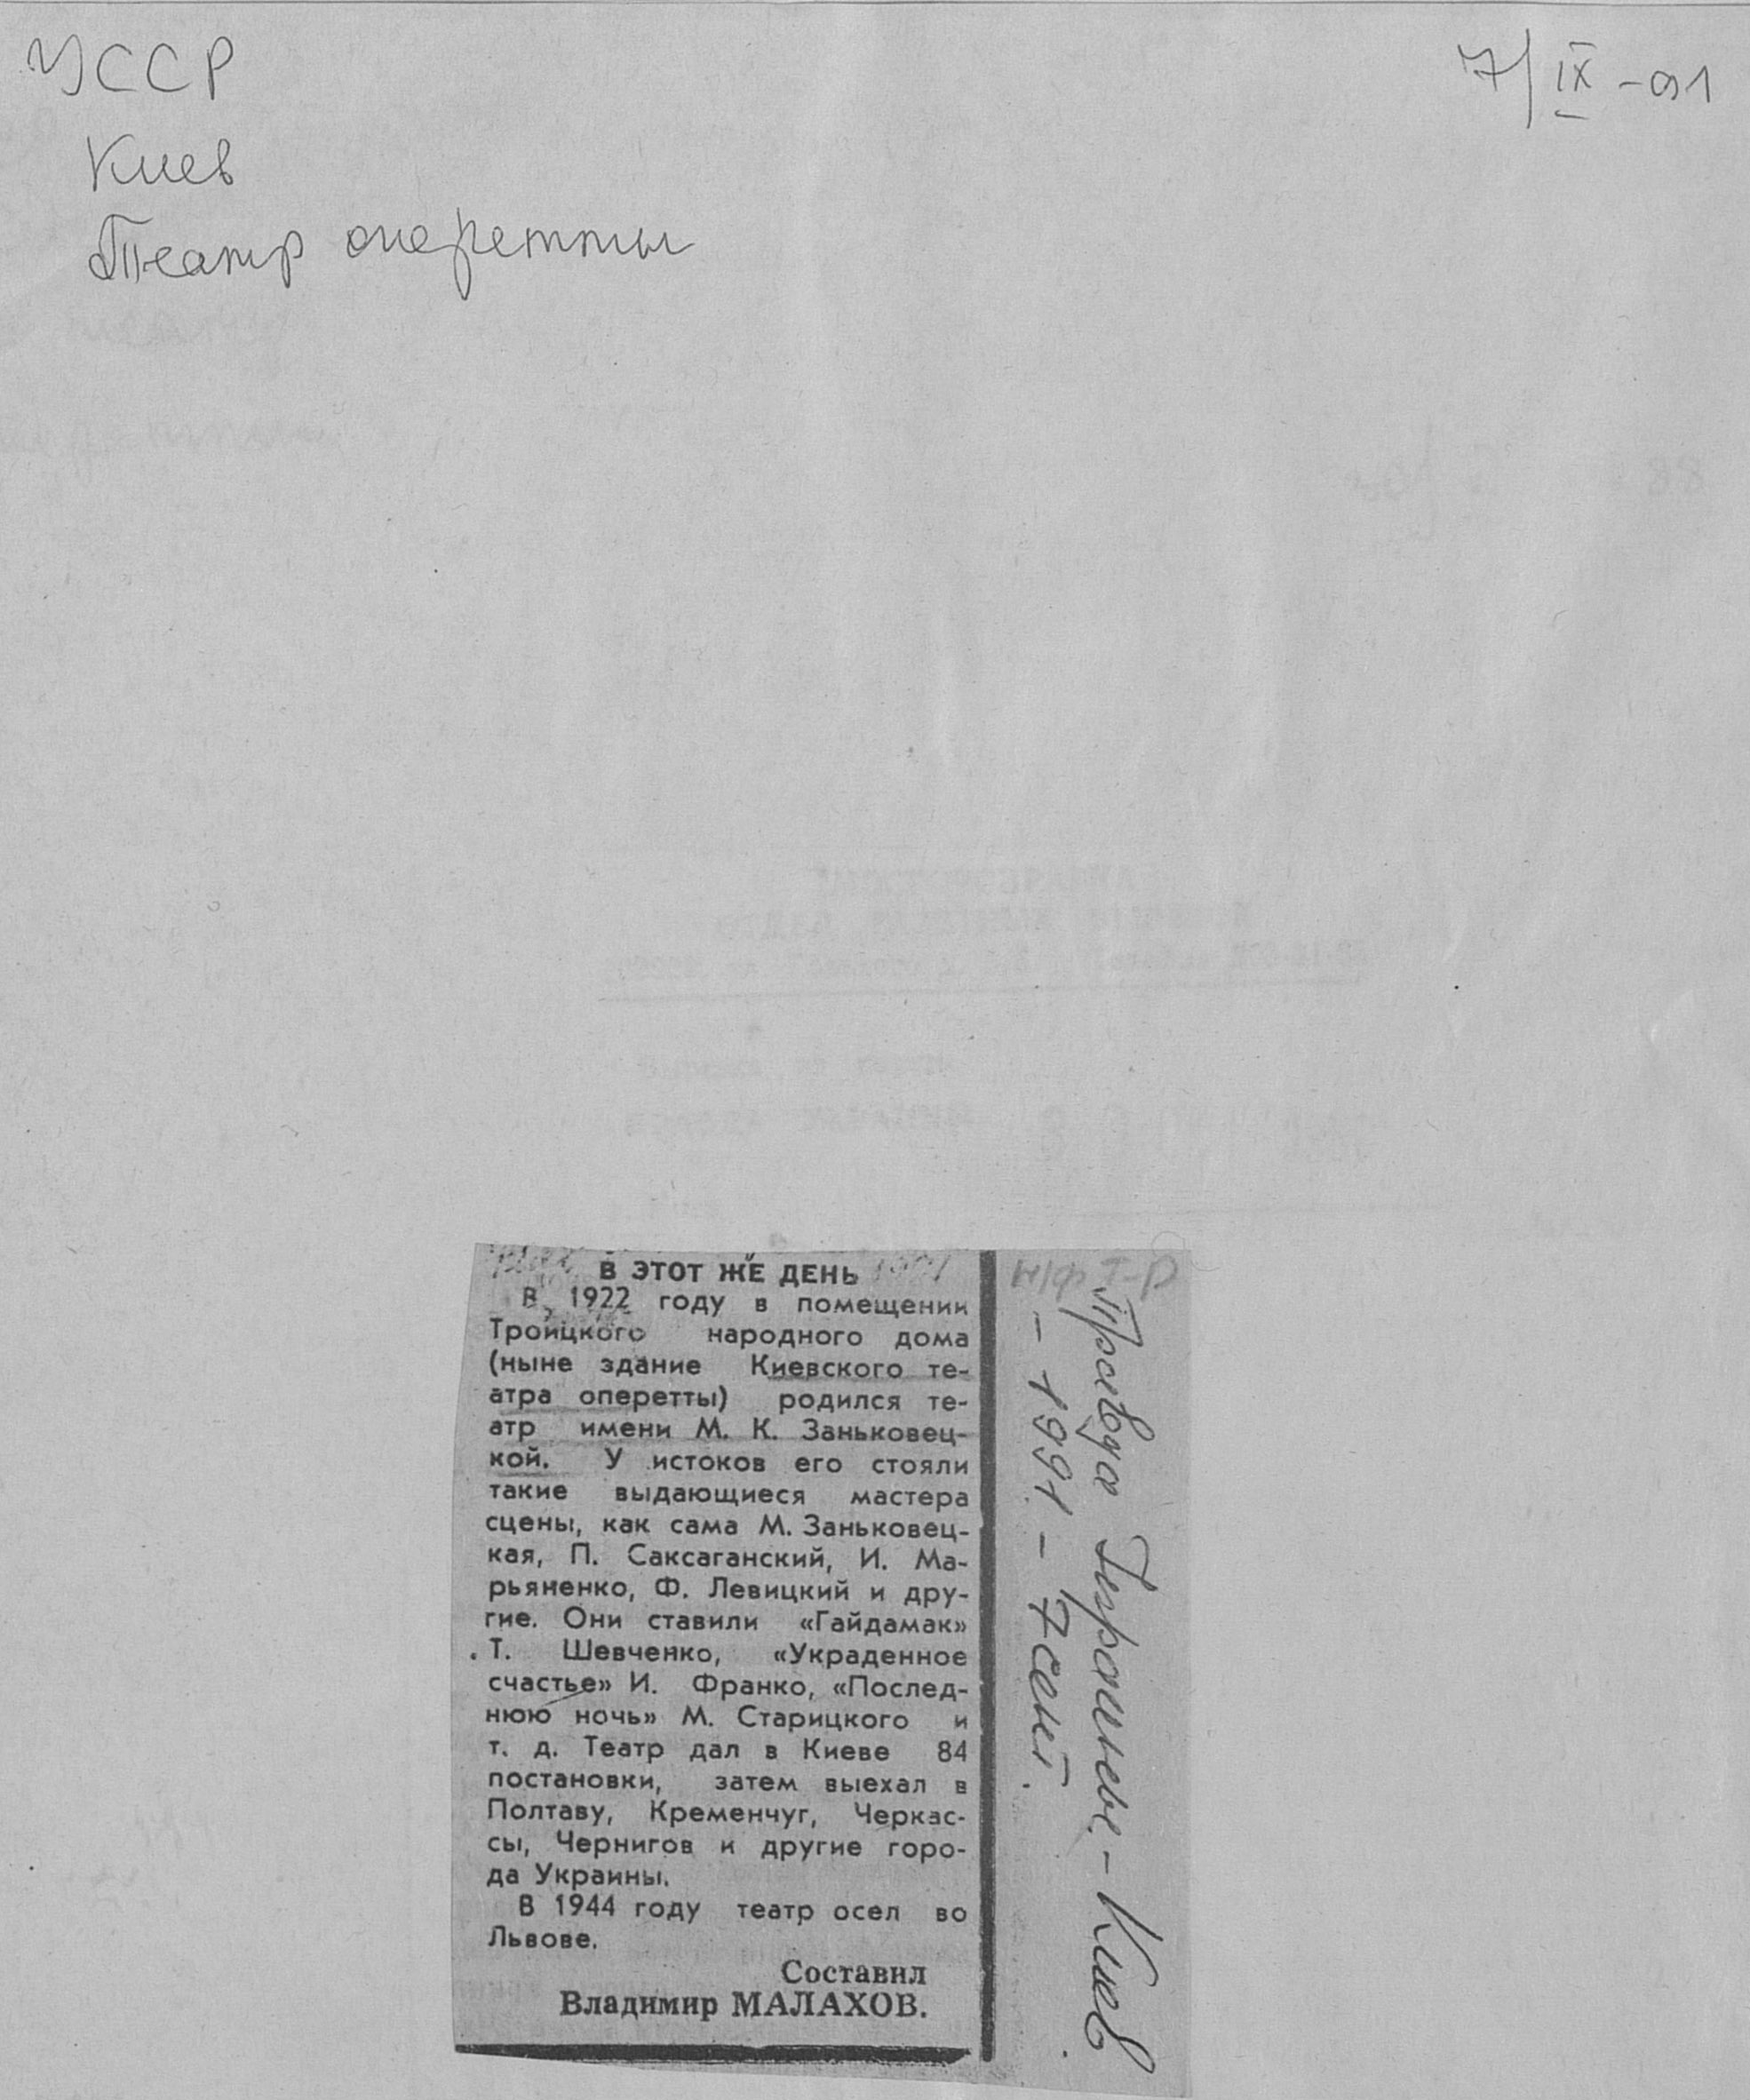 УССР
7/IX-91
Киев
Театр оперетты
В ЭТОТ ЖЕ ДЕНЬ
В 1922 году в помещении
Троицкого народного дома
(ныне здание Киевского те-
атра оперетты) родился те-
атр имени М. К. Заньковец-
кой. У истоков его стояли
такие выдающиеся мастера
сцены, как сама М. Заньковец-
кая, П. Саксаганский, И. Ма-
рьяненко, Ф. Левицкий и дру-
гие. Они ставили «Гайдамак»
Т. Шевченко, «Украденное
счастье» И. Франко, «Послед-
нюю ночь» М. Старицкого и
т. д. Театр дал в Киеве 84
постановки, затем выехал в
Полтаву, Кременчуг, Черкас-
сы, Чернигов и другие горо-
да Украины.
В 1944 году театр осел во
Львове.
Составил
Владимир МАЛАХОВ.
Правда Украины - Киев
- 1991 - 7 сент.